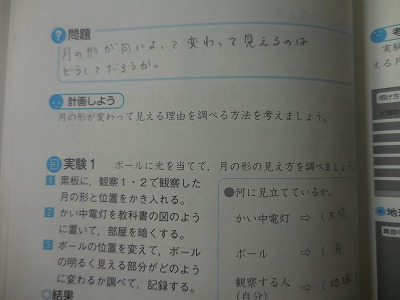 問題
月の形が日によって変わって見えるのは
どうしてだろうか。
計画しよう
月の形が変わって見える理由を調べる方法を考えましょう。
実験1 ボールに光を当てて、月の形の見え方を調べましょう。
1 黒板に、観察1・2で観察した
月の形と位置をかき入れる。
2 かい中電灯を教科書の図のよう
に置いて、部屋を暗くする。
3 ボールの位置を変えて、ボール
の明るく見える部分がどのよう
に変わるか調べて、記録する。
◎結果
●何に見立てているか。
かい中電灯 ⇨ (太陽
ボール ⇨ ( 月 )
観察する人 ⇨ (地球
(自分)
実験
える月
明け方
●地
真夜